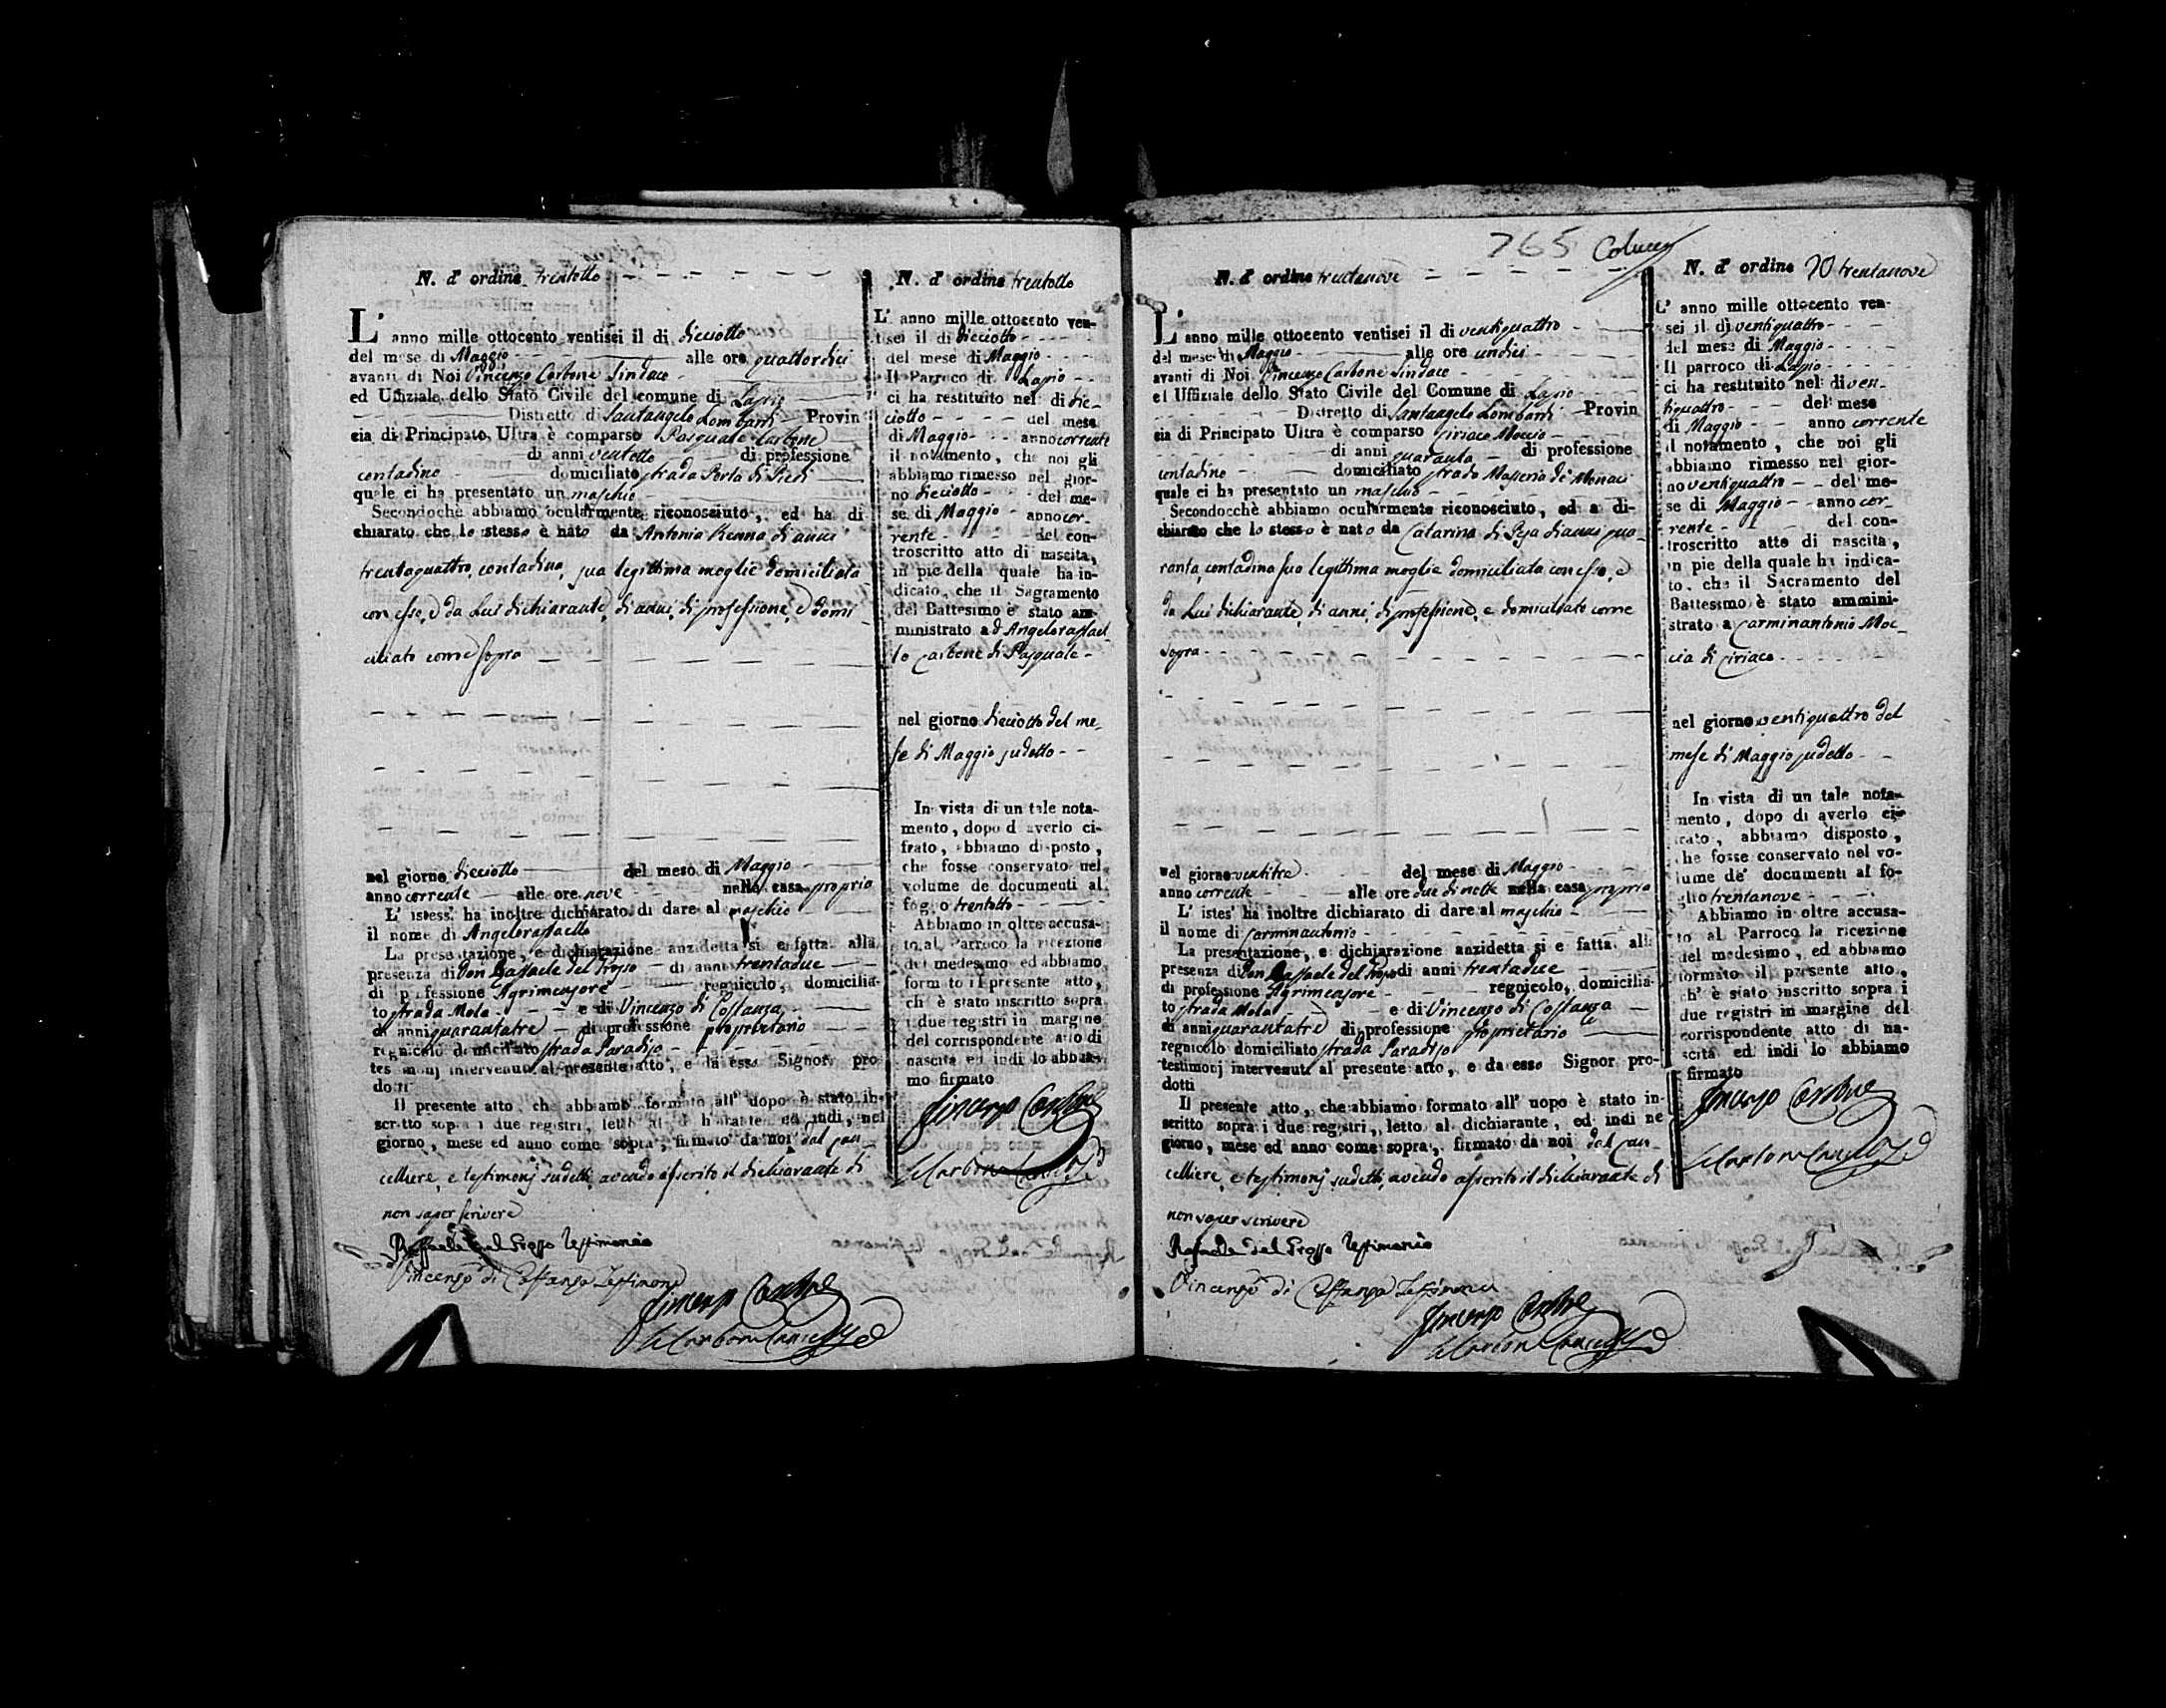 N. d' ordine trentotto
L' anno mille ottocento ventisei il di dieciotto
del mese di Maggio alle ore quattordici
avanti di Noi Vincenzo Carbone Sindaco
ed Uffiziale dello Stato Civile del comune di Lapio
Distretto di Santangelo Lombardi Provin
cia di Principato Ultra è comparso Pasquale Carbone
di anni ventotto di professione
contadino domiciliato strada Porta di Piedi
quale ci ha presentato un maschio
Secondochè abbiamo ocularmente riconosciuto, ed ha di
chiarato che lo stesso è nato da Antonia Renna di anni
trentaquattro, contadina, sua legittima moglie domiciliata
con esso, e da Lui dichiarante, di anni, di professione, e domi
ciliato come sopra
nel giorno dieciotto del mese di Maggio
anno corrente alle ore nove nella casa propria
L' istess' ha inoltre dichiarato di dare al maschio
il nome di Angeloraffaello
La presentazione, e dichiarazione anzidetta si e fatta alla
presenza di Don Raffaele del Grosso di anni trentadue
di professione Agrimensore regnicolo, domicilia-
to strada Mola e di Vincenzo di Costanza
di anni quarantatre di professione proprietario
regnicolo domiciliato strada Paradiso
testimonj intervenuti al presente atto, e da esso Signor pro
dotti
Il presente atto, che abbiamo formato all' uopo è stato in-
scritto sopra i due registri, letto al dichiarante, ed indi, nel
giorno, mese ed anno come sopra, firmato da noi dal can
celliere, e testimonj sudetti, avendo asserito il dichiarante di
non saper scrivere
Raffaele del Grosso Testimonio
Vincenzo di Costanza Testimone
Vincenzo Carbone
N. d' ordine trentotto
L' anno mille ottocento ven-
tisei il di dieciotto
del mese di Maggio
Il Parroco di Lapio
ci ha restituito nel di die-
ciotto del mese
di Maggio anno corrente
il notamento, che noi gli
abbiamo rimesso nel gior-
no dieciotto del me-
se di Maggio anno cor-
rente del con-
troscritto atto di nascita,
in pie della quale ha in-
dicato, che il Sagramento
del Battesimo è stato am-
ministrato ad Angeloraffael-
lo Carbone di Pasquale
nel giorno dieciotto del me-
se di Maggio sudetto
In vista di un tale nota-
mento, dopo d averlo ci-
frato, abbiamo disposto,
che fosse conservato nel
volume de documenti al
foglio trentotto
Abbiamo in oltre accusa-
to al Parroco la ricezione
del medesimo ed abbiamo
formato il presente atto,
ch' è stato inscritto sopra
i due registri in margine
del corrispondente atto di
nascita ed indi lo abbia-
mo firmato
Vincenzo Carbone
765
N. d' ordine trentanove
L' anno mille ottocento ventisei il di ventiquattro
del mese di Maggio alle ore undici
avanti di Noi Vincenzo Carbone Sindaco
ed Uffiziale dello Stato Civile del Comune di Lapio
Distretto di Santangelo Lombardi Provin
cia di Principato Ultra è comparso Ciriaco Moccia
di anni quaranta di professione
contadino domiciliato strada Masseria de' Monaci
quale ci ha presentato un maschio
Secondocchè abbiamo ocularmente riconosciuto, ed a di-
chiarato che lo stesso è nato da Catarina di Pesa di anni qua-
ranta, contadina sua legittima moglie domiciliata con esso, e
da Lui dichiarante di anni, di professione, e domiciliato come
sopra
nel giorno ventitre del mese di Maggio
anno corrente alle ore due di notte nella casa propria
L' istes' ha inoltre dichiarato di dare al maschio
il nome di Carminantonio
La presentazione, e dichiarazione anzidetta si e fatta alla
presenza di Don Raffaele del Grosso di anni trentadue
di professione Agrimensore regnicolo, domicilia-
to strada Mola e di Vincenzo di Costanza
di anni quarantatre di professione proprietario
regnicolo domiciliato strada Paradiso
testimonj intervenuti al presente atto, e da esso Signor pro-
dotti
Il presente atto, che abbiamo formato all' uopo è stato in-
scritto sopra i due registri, letto al dichiarante, ed indi ne
giorno, mese ed anno come sopra, firmato da noi dal can-
celliere, e testimonj sudetti, avendo asserito il dichiarante di
non saper scrivere
Raffaele del Grosso Testimonio
Vincenzo di Costanza Testimone
Vincenzo Carbone
N. d' ordine trentanove
L' anno mille ottocento ven-
sei il di ventiquattro
del mese di Maggio
Il parroco di Lapio
ci ha restituito nel di ven-
tiquattro del mese
di Maggio anno corrente
il notamento, che noi gli
abbiamo rimesso nel gior-
no ventiquattro del me-
se di Maggio anno cor-
rente del con-
troscritto atto di nascita,
in pie della quale ha indica-
to, che il Sacramento del
Battesimo è stato ammini-
strato a Carminantonio Moc-
cia di Ciriaco
nel giorno ventiquattro del
mese di Maggio sudetto
In vista di un tale nota-
mento, dopo di averlo ci-
frato, abbiamo disposto,
che fosse conservato nel vo-
lume de' documenti al fo-
glio trentanove
Abbiamo in oltre accusa-
to al Parroco la ricezione
del medesimo, ed abbiamo
formato il presente atto,
ch' è stato inscritto sopra i
due registri in margine del
corrispondente atto di na-
scita ed indi lo abbiamo
firmato
Vincenzo Carbone